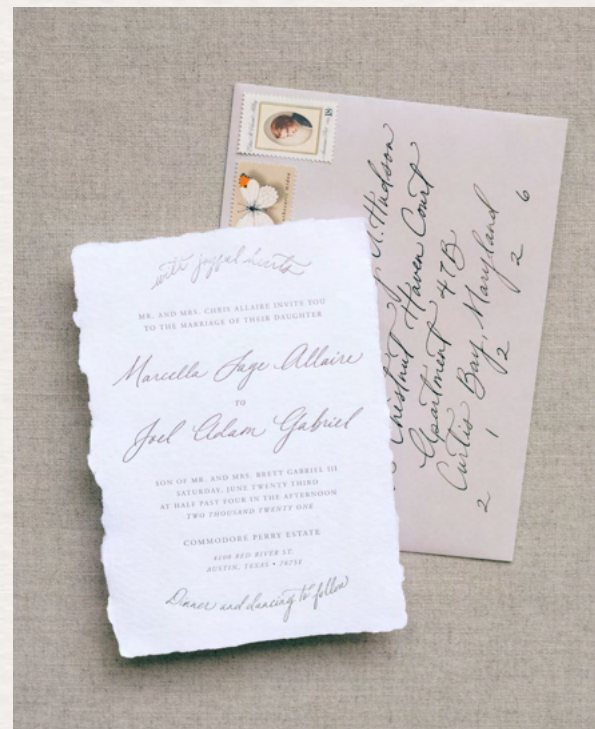 with joyful hearts
MR. AND MRS. CHRIS ALLAIRE INVITE YOU
TO THE MARRIAGE OF THEIR DAUGHTER
Marcella Sage Allaire
TO
Joel Adam Gabriel
SON OF MR. AND MRS. BRETT GABRIEL III
SATURDAY, JUNE TWENTY THIRD
AT HALF PAST FOUR IN THE AFTERNOON
TWO THOUSAND TWENTY ONE
COMMODORE PERRY ESTATE
4100 RED RIVER ST.
AUSTIN, TEXAS • 78751
Dinner and dancing to follow
Hudson
Chestnut Haven Court
Apartment 47B
Curtis Bay, Maryland
2 1 2 2 6
18c